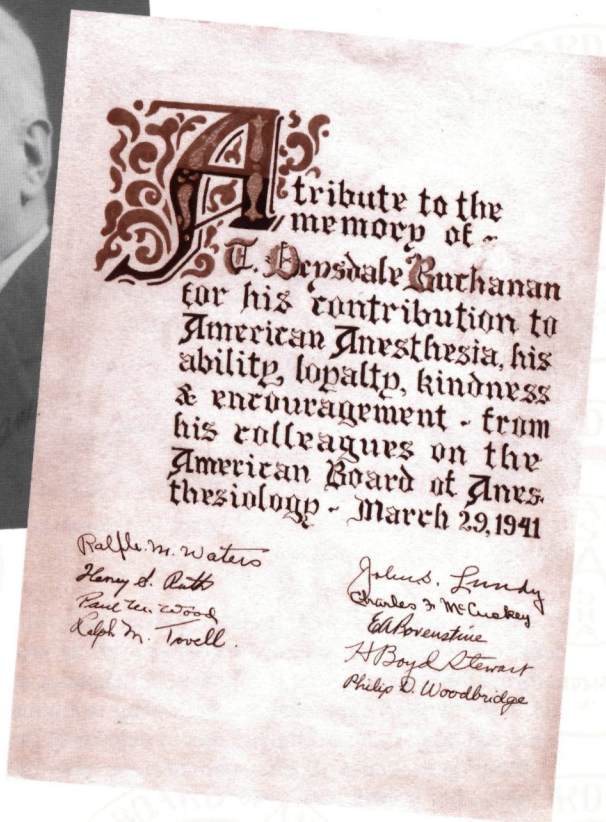 A
tribute to the
memory of -
T. Drysdale Buchanan
for his contribution to
American Anesthesia, his
ability, loyalty, kindness
& encouragement - from
his colleagues on the
American Board of Anes-
thesiology - March 29, 1941
Ralph M. Waters
Henry S. Ruth
Paul M. Wood
Ralph M. Tovell.
John S. Lundy
Charles F McCuskey
EA Rovenstine
H Boyd Stewart
Philip D. Woodbridge